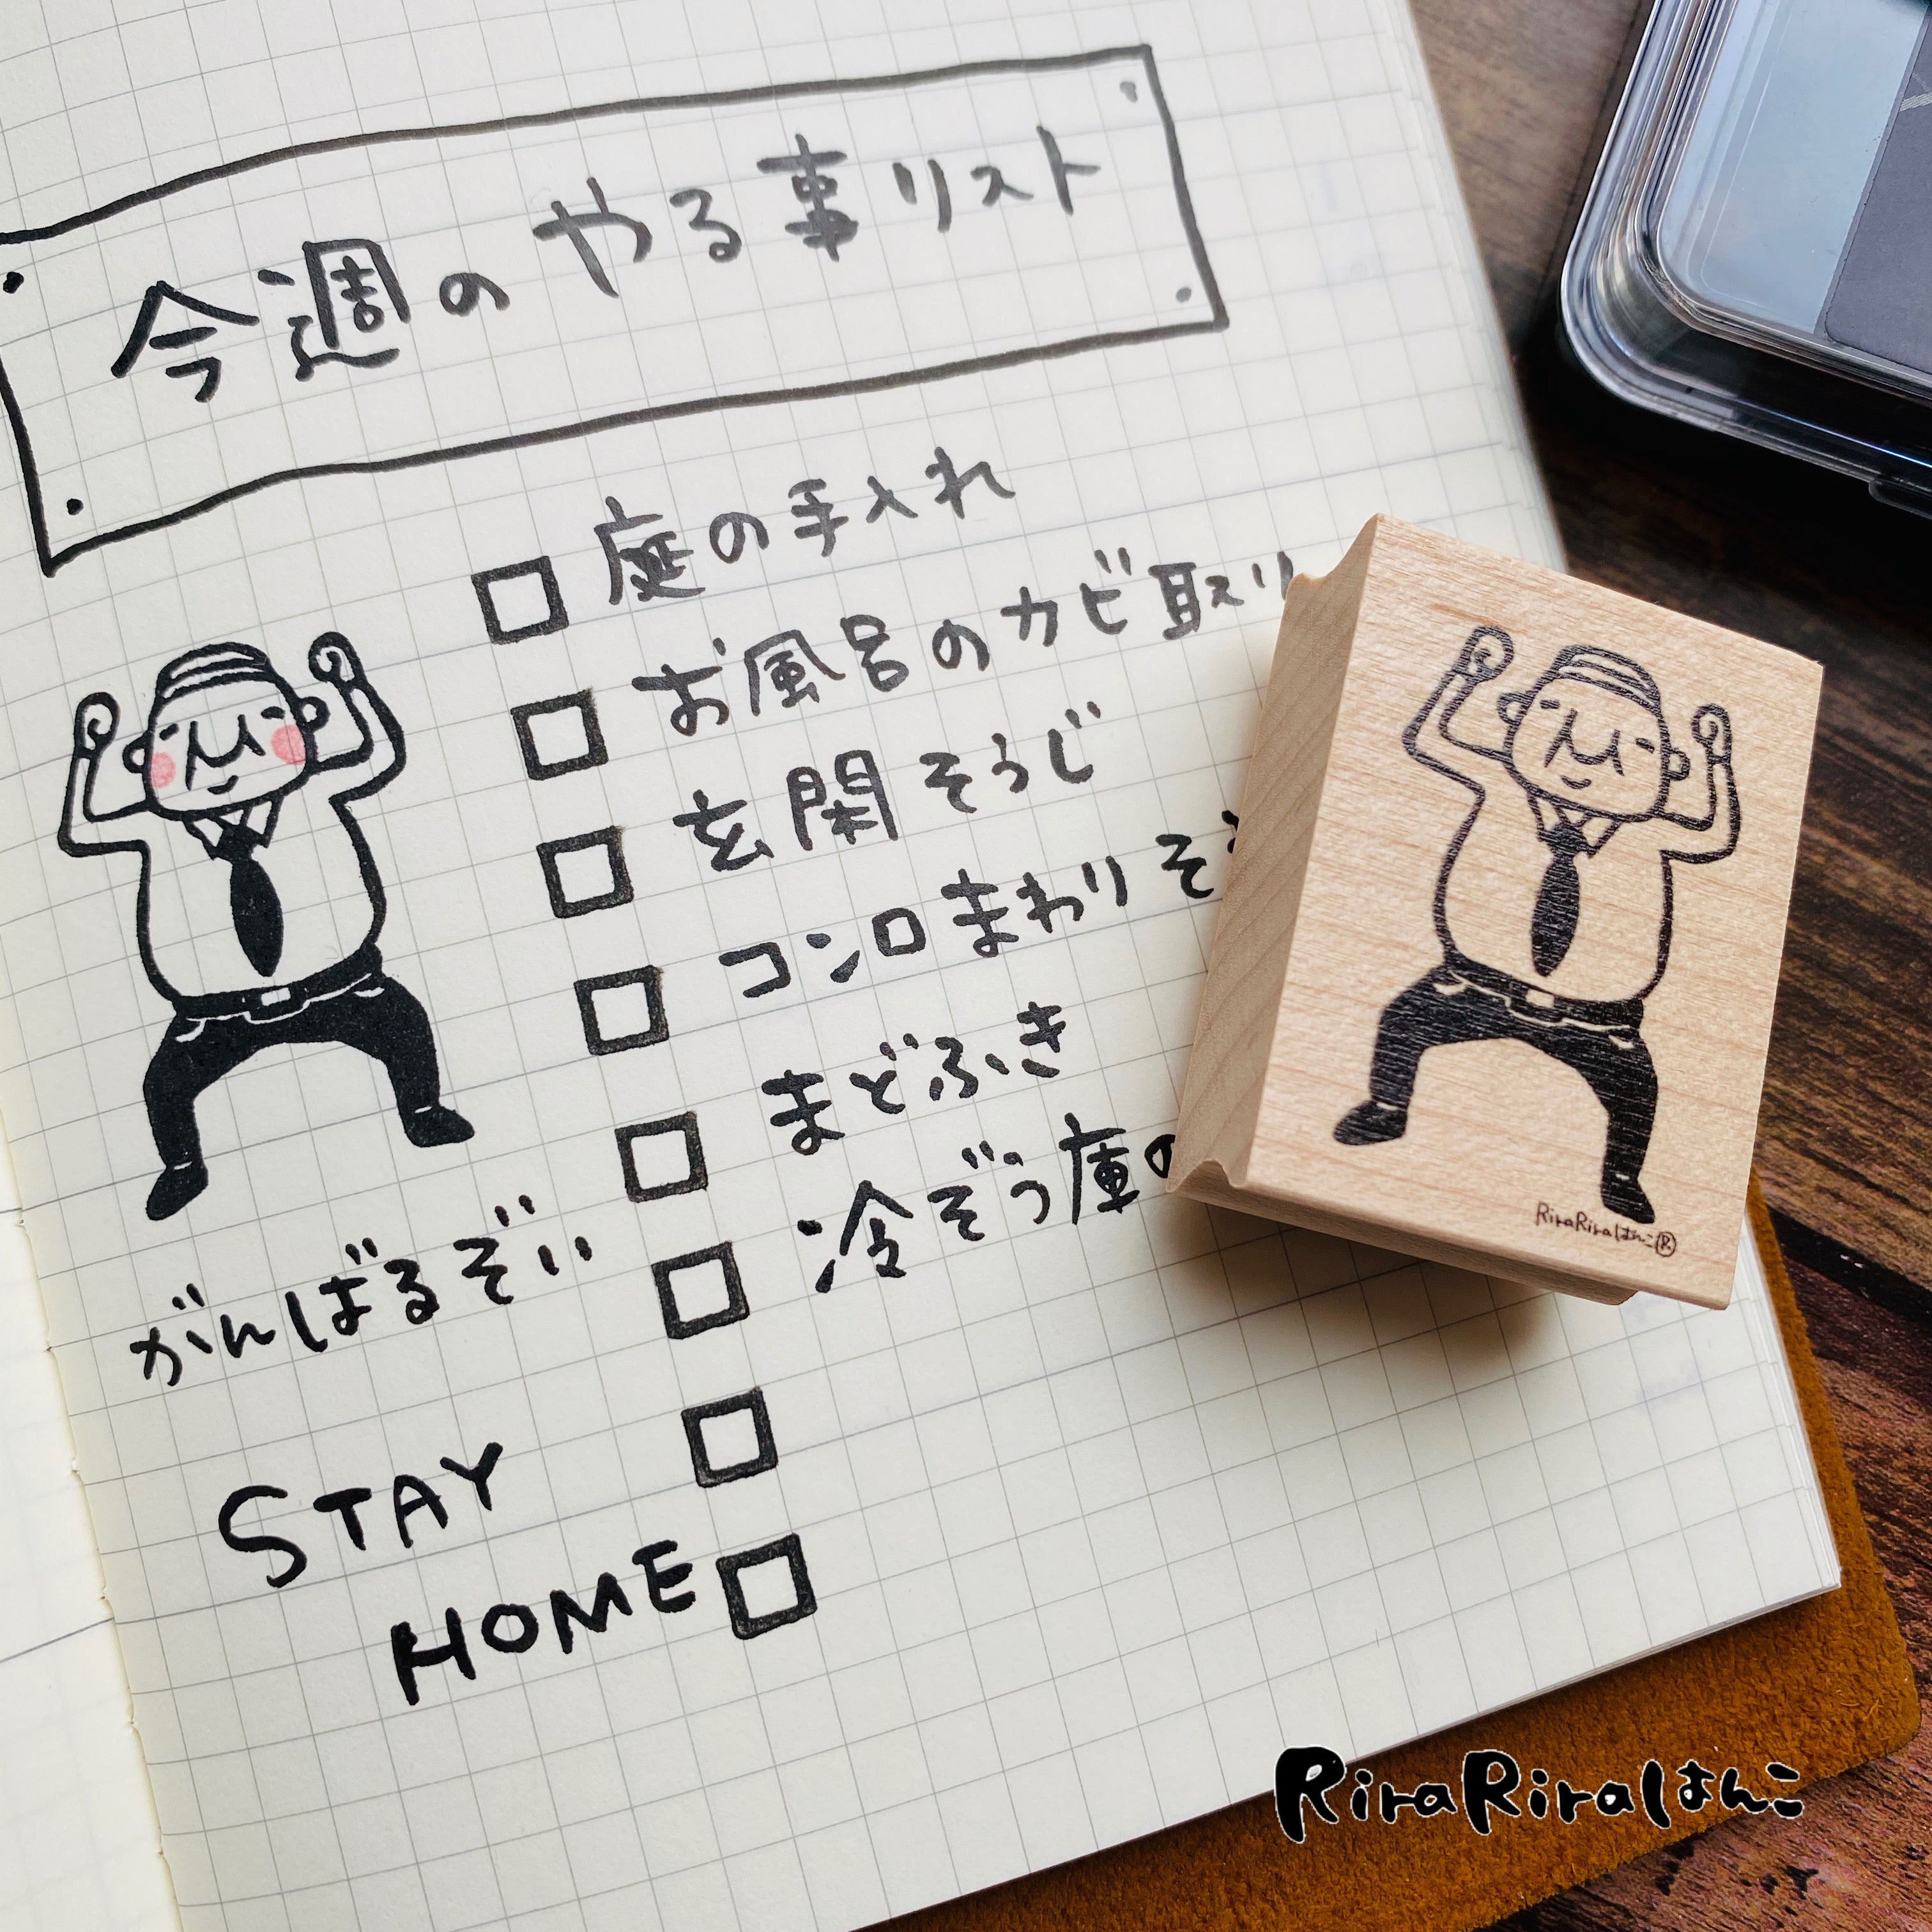 今週のやる事リスト
庭の手入れ
お風呂のカビ取り
玄関そうじ
コンロまわりそ
まどふき
冷ぞう庫の
がんばるぞい
STAY
HOME
RiraRiraはんこ®
RiraRiraはんこ